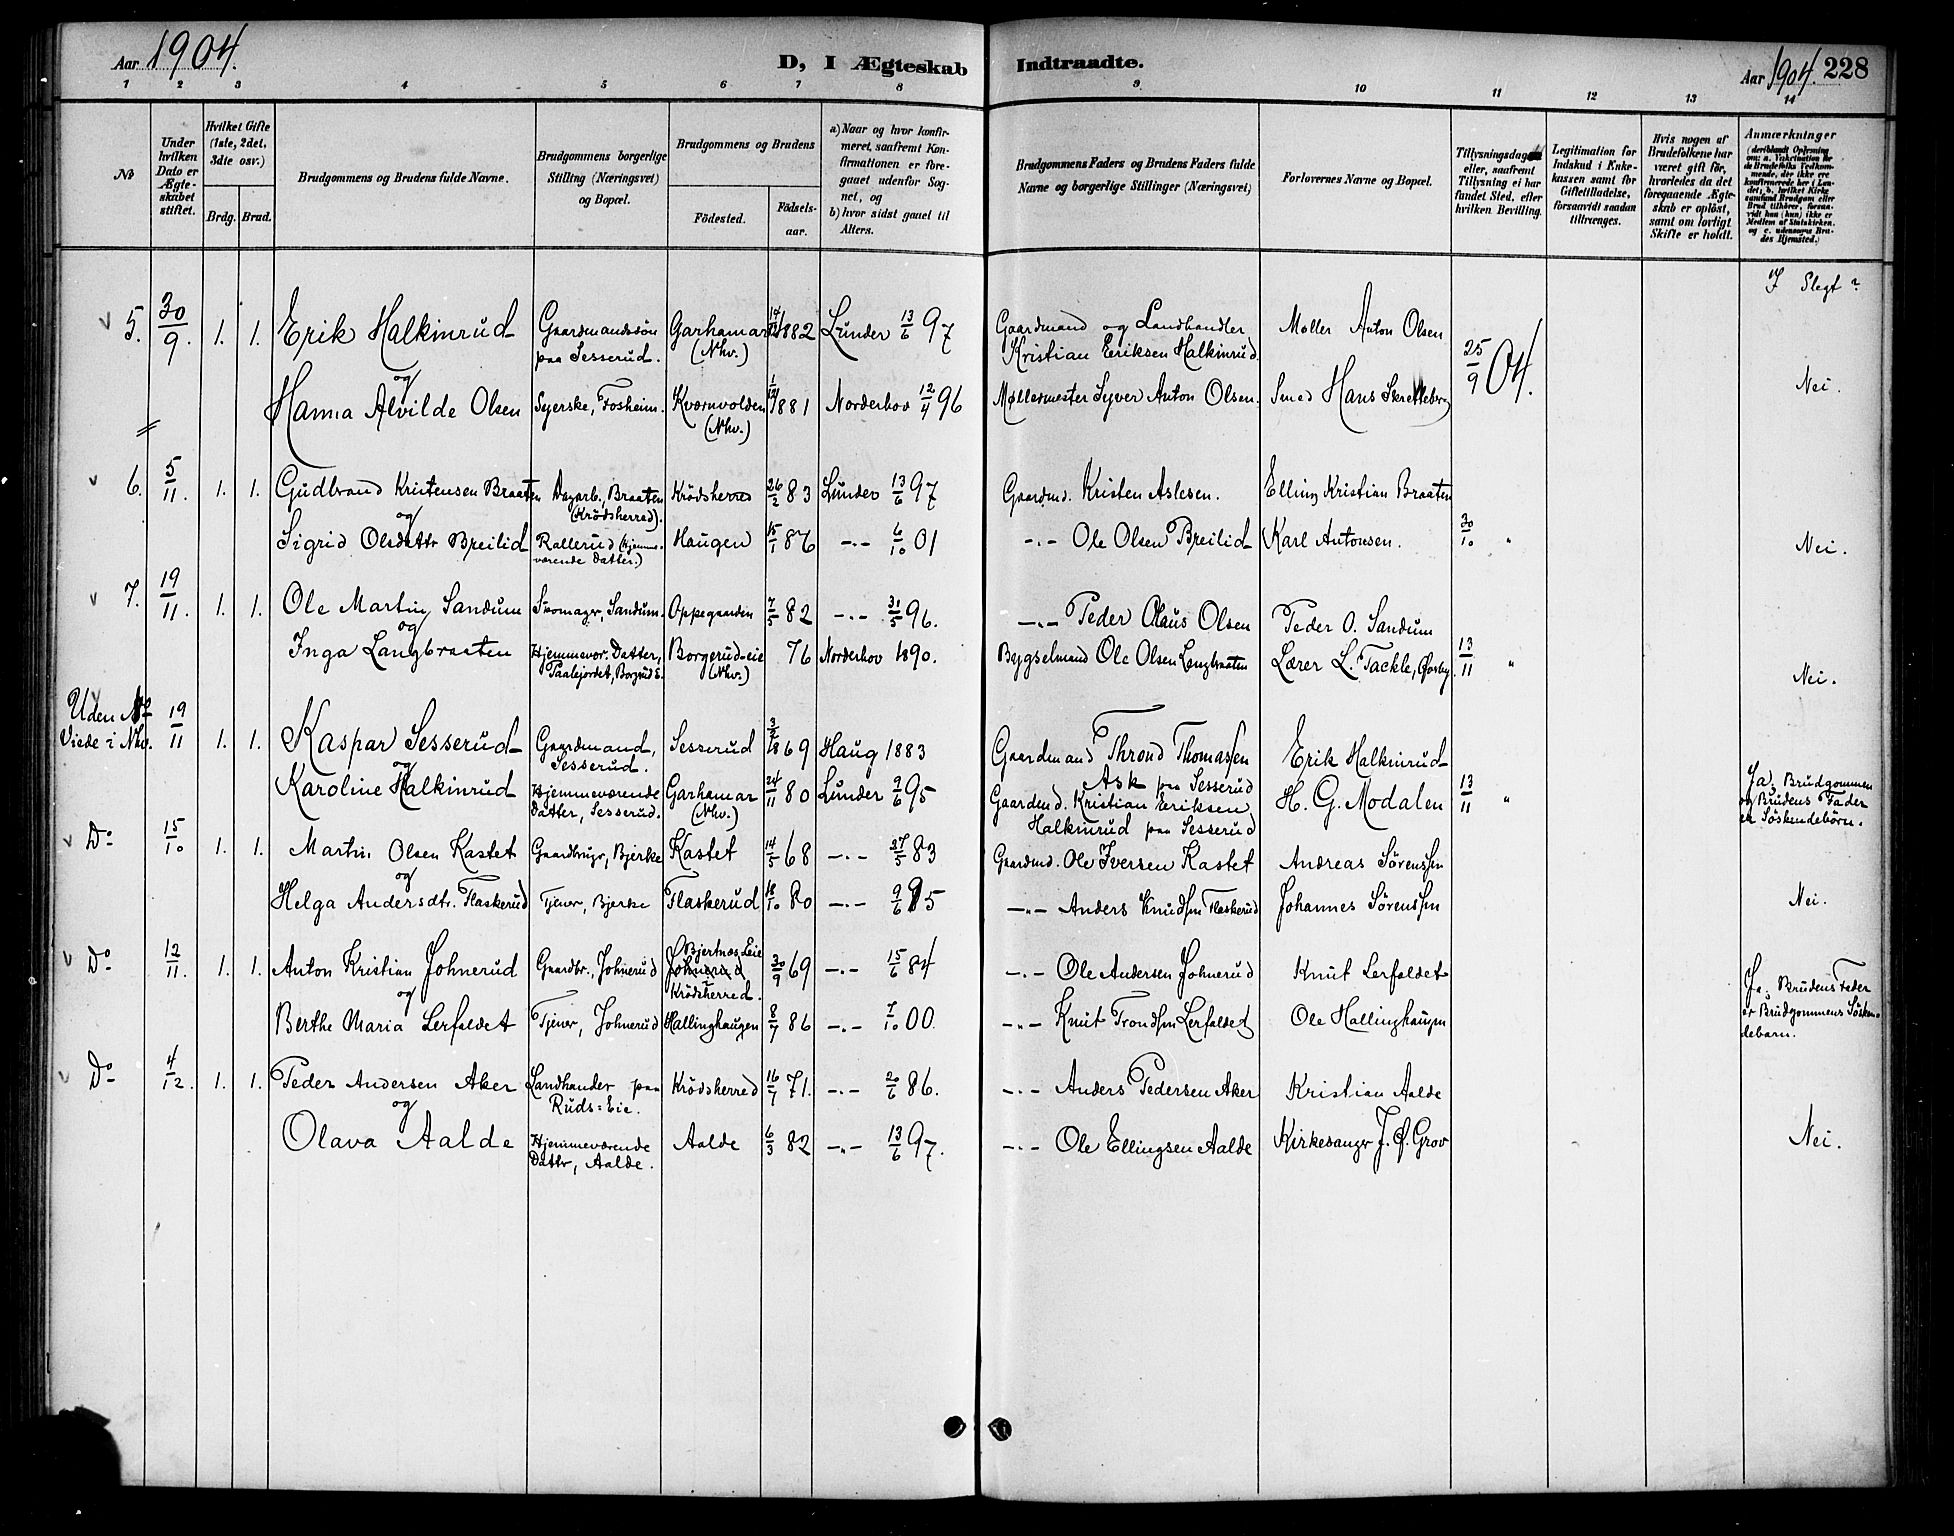 Aar 1904. D, I Ægteskab Indtraadte. Aar 1904. 228
1 2 3 4 5 6 7 8 9 10 11 12 13 14
No
Under hvilken Dato er Ægteskabet stiftet.
Hvilket Gifte (1ste, 2det, 3die osv.)
Brdg. Brud.
Brudgommens og Brudens fulde Navne.
Brudgommens borgerlige Stilling (Næringsvei) og Bopæl.
Brudgommens og Brudens
Fødested. Fødselsaar.
a) Naar og hvor konfirmeret, saafremt Konfirmationen er foregaaet udenfor Sognet, og
b) hvor sidst gaaet til Alters.
Brudgommens Faders og Brudens Faders fulde Navne og borgerlige Stillinger (Næringsvei)
Forlovernes Navne og Bopæl.
Tillysningsdage eller, saafremt Tillysning ei har fundet Sted, efter hvilken Bevilling.
Legitimation for Indskud i Enkekassen samt for Giftetilladelse, forsaavidt saadan tiltrænges.
Hvis nogen af Brudefolkene har været gift før, hvorledes da det foregaaende Ægteskab er opløst, samt om lovligt Skifte er holdt.
Anmærkninger (deriblandt Oplysning om: a. Vakcination for de Brudefolks Vedkommende, der ikke ere konfirmerede her i Landet; b. hvilket Kirkesamfund Brudgom eller Brud tilhører, forsaavidt han (hun) ikke er Medlem af Statskirken, og c. udensogns Brudes Hjemsted.)
I Slegt?
5. 30/9. 1. 1. Erik Halkinrud Gaardmandssøn paa Sesserud. Garhamar (Nhv.) 1882 Lunder 13/6 97 Gaardmand og Landhandler Kristian Eeriksen Halkinrud Møller Anton Olsen
og
Hanna Alvilde Olsen Syerske, Fosheim. Kværnvolden (Nhv.) 1881 Norderhov 12/4 96 Møllermester Syver Anton Olsen. Smed Hans Skretteberg 25/9 04. Nei.
6. 5/11. 1. 1. Gudbrand Kristensen Braaten Dagarb., Braaten (Krödsherred). Krödsherred 26/2 83 Lunder 13/6 97 Gaardmd. Kristen Aslesen. Elling Kristian Braaten
og
Sigrid Olsdattr Breilid Rallerud (hjemmeværende Datter.) Haugen 15/1 86 –"– 6/10 01 –"– Ole Olsen Breilid Karl Antonsen. 30/10 " Nei.
7. 19/11. 1. 1. Ole Martin Sandum Skomager, Sandum. Oppegaarden 7/5 82 –"– 31/5 96. –"– Peder Olaus Olsen Peder O. Sandum
og
Inga Langbraaten Hjemmevær. Datter, Paalejordet, Borgrud E. Borgerud-eie (Nhv.) 76 Norderhov 1890. Bygselmand Ole Olsen Langbraaten Lærer L. Tackle, Øvsby. 13/11 " Nei.
Uden No Viede i Nhv. 19/11 1. 1. Kaspar Sesserud Gaardmand, Sesserud. Sesserud 3/2 1869 Haug 1883 Gaardmand Thrond Thomassen Ask paa Sesserud Erik Halkinrud
og
Karoline Halkinrud Hjemmeværende Datter, Sesserud. Garhamar (Nhv.) 24/11 80 Lunder 9/6 95 Gaardmd. Kristian Eriksen Halkinrud paa Sesserud H. G. Modalen 13/11 " Ja, Brudgommen og Brudens Fader er Søskendebörn.
Do 15/10 1. 1. Martin Olsen Kastet Gaardbrugr, Bjerke Kastet 14/5 68 –"– 27/5 83 Gaardmd. Ole Iversen Kastet Andreas Sörenssen
og
Helga Andersdtr. Flaskerud Tjener, Bjerke Flaskerud 18/10 80 –"– 9/6 95 –"– Anders Knudsen Flaskerud Johannes Sörenssen Nei.
Do 12/11. 1. 1. Anton Kristian Johnerud Gaardbr., Johnerud Bjertnæs Eie Johnerud Krödsherred. 30/9 69 –"– 15/6 84 –"– Ole Andersen Johnerud Knut Lerfaldet
og
Berthe Maria Lerfaldet Tjener, Johnerud Hallinghaugen 8/7 86 –"– 7/10 00. –"– Knut Trondsen Lerfaldet Ole Hallinghaugen Ja. Brudens Fader er Brudgommens Söskendebarn.
Do 4/12. 1. 1. Peder Andersen Aker Landhander paa Ruds=Eie. Krödsherred 16/7 71. –"– 20/6 86. –"– Anders Pedersen Aker Kristian Aalde
og
Olava Aalde Hjemmeværende Dattr, Aalde. Aalde 6/3 82 –"– 13/6 97. –"– Ole Ellingsen Aalde Kirkesangr J. Ø. Grov Nei.